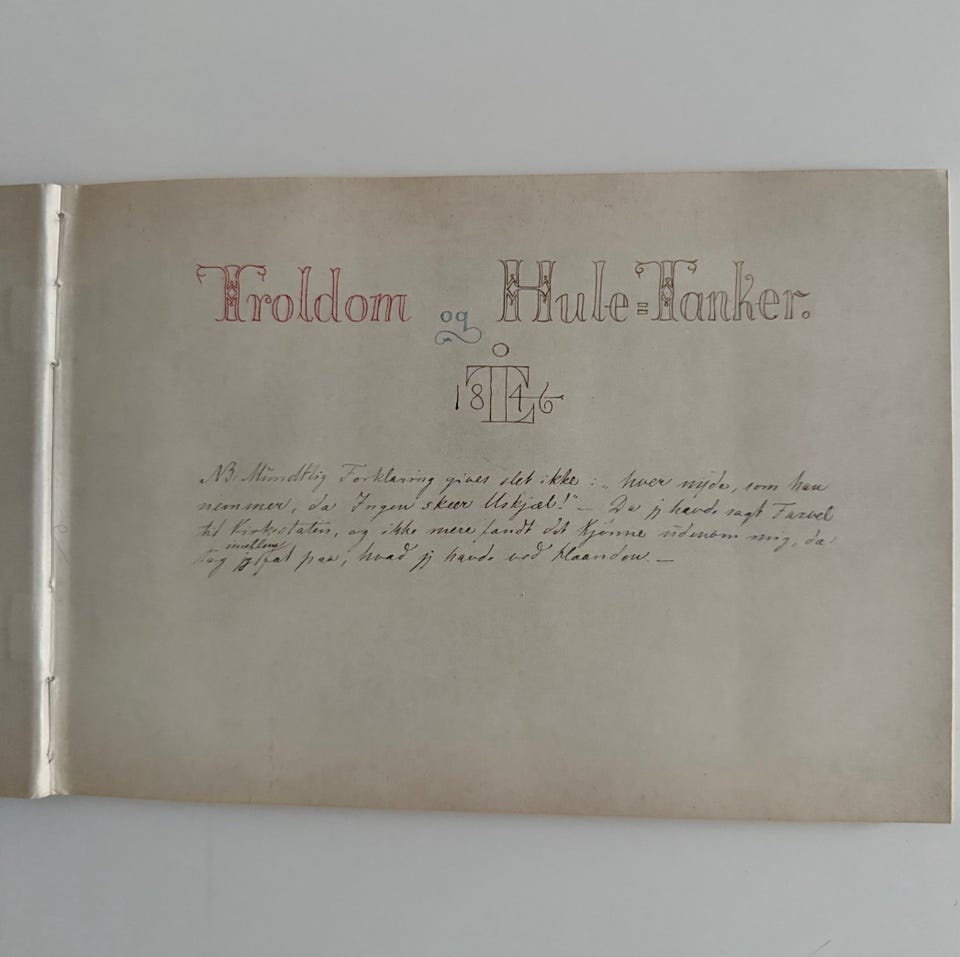 Troldom og Hule=Tanker.
1846
NB. Mundtlig Forklaring gives slet ikke: „hver nyde, som han
nemmer, da Ingen skeer Uskjæl!" – Da jeg havde sagt Farvel
til Kirkestaten, og ikke mere fandt det Kjønne udenom mig, da
imellem
tog jeg fat paa, hvad jeg havde ved Haanden. –